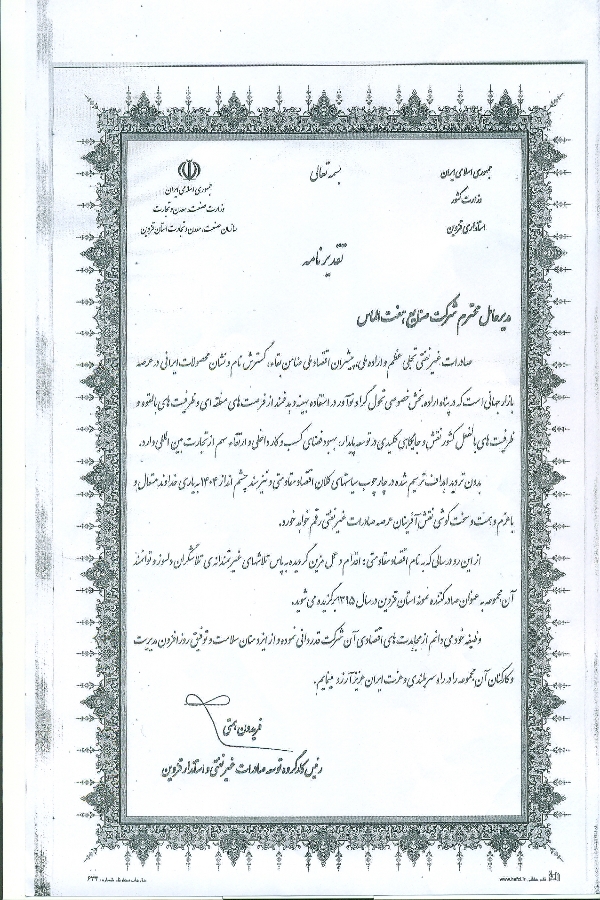 بسمه تعالی
جمهوری اسلامی ایران
وزارت کشور
استانداری قزوین
جمهوری اسلامی ایران
وزارت صنعت، معدن و تجارت
سازمان صنعت، معدن و تجارت استان قزوین
تقدیرنامه
مدیرعامل محترم شرکت صنایع هفت الماس
صادرات غیرنفتی تجلی عظم و اراده ملی، پیشران اقتصاد ملی ضامن بقاء، گسترش نام و نشان محصولات ایرانی در عرصه
بازار جهانی است که در پناه اراده، بخش خصوصی تحول گرا و نوآور در استفاده بهینه و بدهمند از فرصت های منطقه ای و ظرفیت های بالقوه و
ظرفیت های بالفعل کشور نقش و جایگاهی کلیدی در توسعه پایدار، بهبود فضای کسب و کار داخلی و ارتقاء سهم از تجارت بین المللی دارد.
بدون تردید اهداف ترسیم شده در چارچوب سیاستهای کلان اقتصاد مقاومتی و نیز سند چشم انداز ۱۴۰۴ به یاری خداوند متعال و
با عزم و همت و سخت کوشی نقش آفرینان عرصه صادرات غیرنفتی رقم خواهد خورد.
از این رو در سالی که به نام اقتصاد مقاومتی؛ اقدام و عمل مزین گردیده به پاس تلاشهای غیرتمندانه ی تلاشگران دلسوز و توانمند
آن مجموعه به عنوان صادرکننده نمونه استان قزوین در سال ۱۳۹۵ برگزیده می شوید.
وظیفه خود می دانم از مجاهدت های اقتصادی آن شرکت قدردانی نموده و از ایزد منان سلامت و توفیق روزافزون مدیریت
و کارکنان آن مجموعه را در راه سربلندی و عزت ایران عزیز آرزو می نمایم.
فریدون همتی
رئیس کارگروه توسعه صادرات غیرنفتی و استاندار قزوین